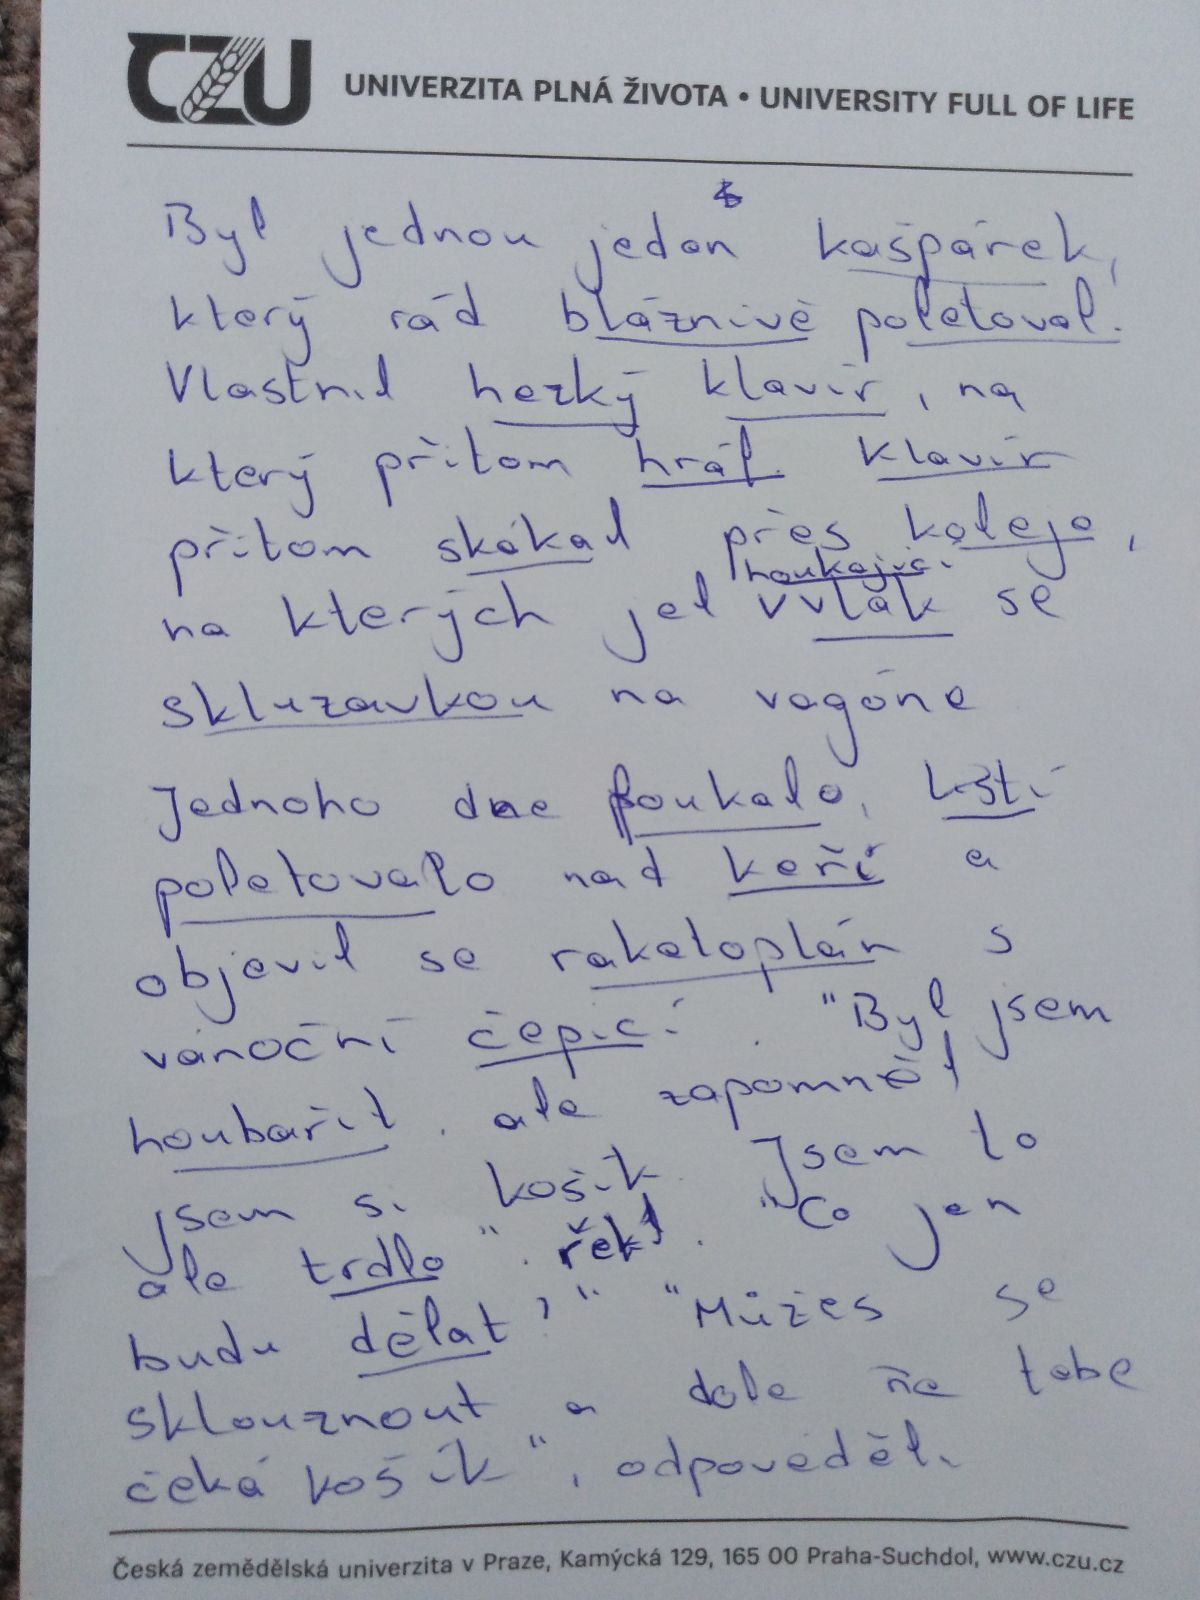 ČZU UNIVERZITA PLNÁ ŽIVOTA • UNIVERSITY FULL OF LIFE
Byl jednou jeden kašpárek,
který rád bláznivě poletoval.
Vlastnil hezký klavír, na
který přitom hrál. Klavír
přitom skákal přes koleje,
houkající
na kterých jel vlak se
skluzavkou na vagóne
Jednoho dne foukalo, listí
poletovalo nad keři a
objevil se raketoplán s
vánoční čepicí. "Byl jsem
houbařit, ale zapomněl
jsem si košík. Jsem to
ale trdlo", řekl. "Co jen
budu dělat?" "Můžeš se
sklouznout a dole na tebe
čeká košík", odpověděl.
Česká zemědělská univerzita v Praze, Kamýcká 129, 165 00 Praha-Suchdol, www.czu.cz